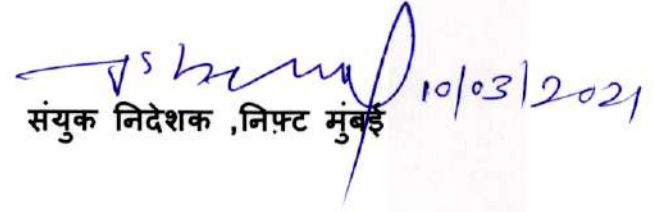 10/03/2021
संयुक निदेशक ,निफ़्ट मुंबई